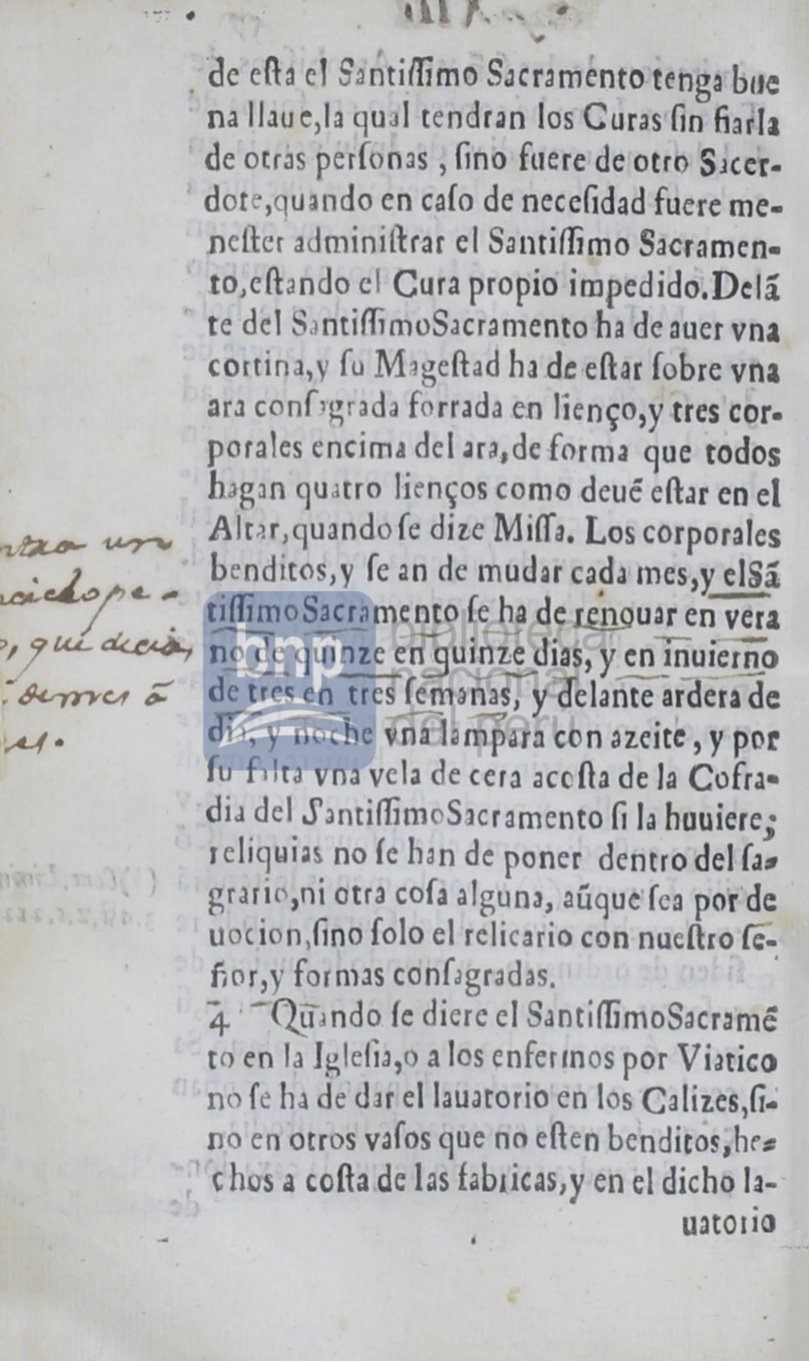 de eſta el Santiſſimo Sacramento tenga bue
na llaue,la qual tendran los Curas ſin fiarla
de otras perſonas , ſino fuere de otro Sacer-
dote,quando en caſo de neceſidad fuere me-
neſter adminiſtrar el Santiſſimo Sacramen-
to,eſtando el Cura propio impedido.Delã
te del SantiſſimoSacramento ha de auer vna
cortina,y ſu Mageſtad ha de eſtar ſobre vna
ara conſagrada forrada en lienço,y tres cor-
porales encima del ara,de forma que todos
hagan quatro lienços como deuẽ eſtar en el
Altar,quando ſe dize Miſſa. Los corporales
benditos,y ſe an de mudar cada mes,y elSã
tiſſimoSacramento ſe ha de renouar en vera
no de quinze en quinze dias, y en inuierno
de tres en tres ſemanas, y delante ardera de
dia, y noche vna lampara con azeite, y por
ſu falta vna vela de cera acoſta de la Cofra-
dia del SantiſſimoSacramento ſi la huuiere;
reliquias no ſe han de poner dentro del ſa-
grario,ni otra coſa alguna, aũque ſea por de
uocion,ſino ſolo el relicario con nueſtro ſe-
ñor,y formas conſagradas.
4 Quando ſe diere el SantiſſimoSacramẽ
to en la Igleſia,o a los enfermos por Viatico
no ſe ha de dar el lauatorio en los Calizes,ſi-
no en otros vaſos que no eſten benditos,he-
chos a coſta de las fabricas,y en el dicho la-
uatorio
un
que
bnp
biblioteca
nacional
del perú